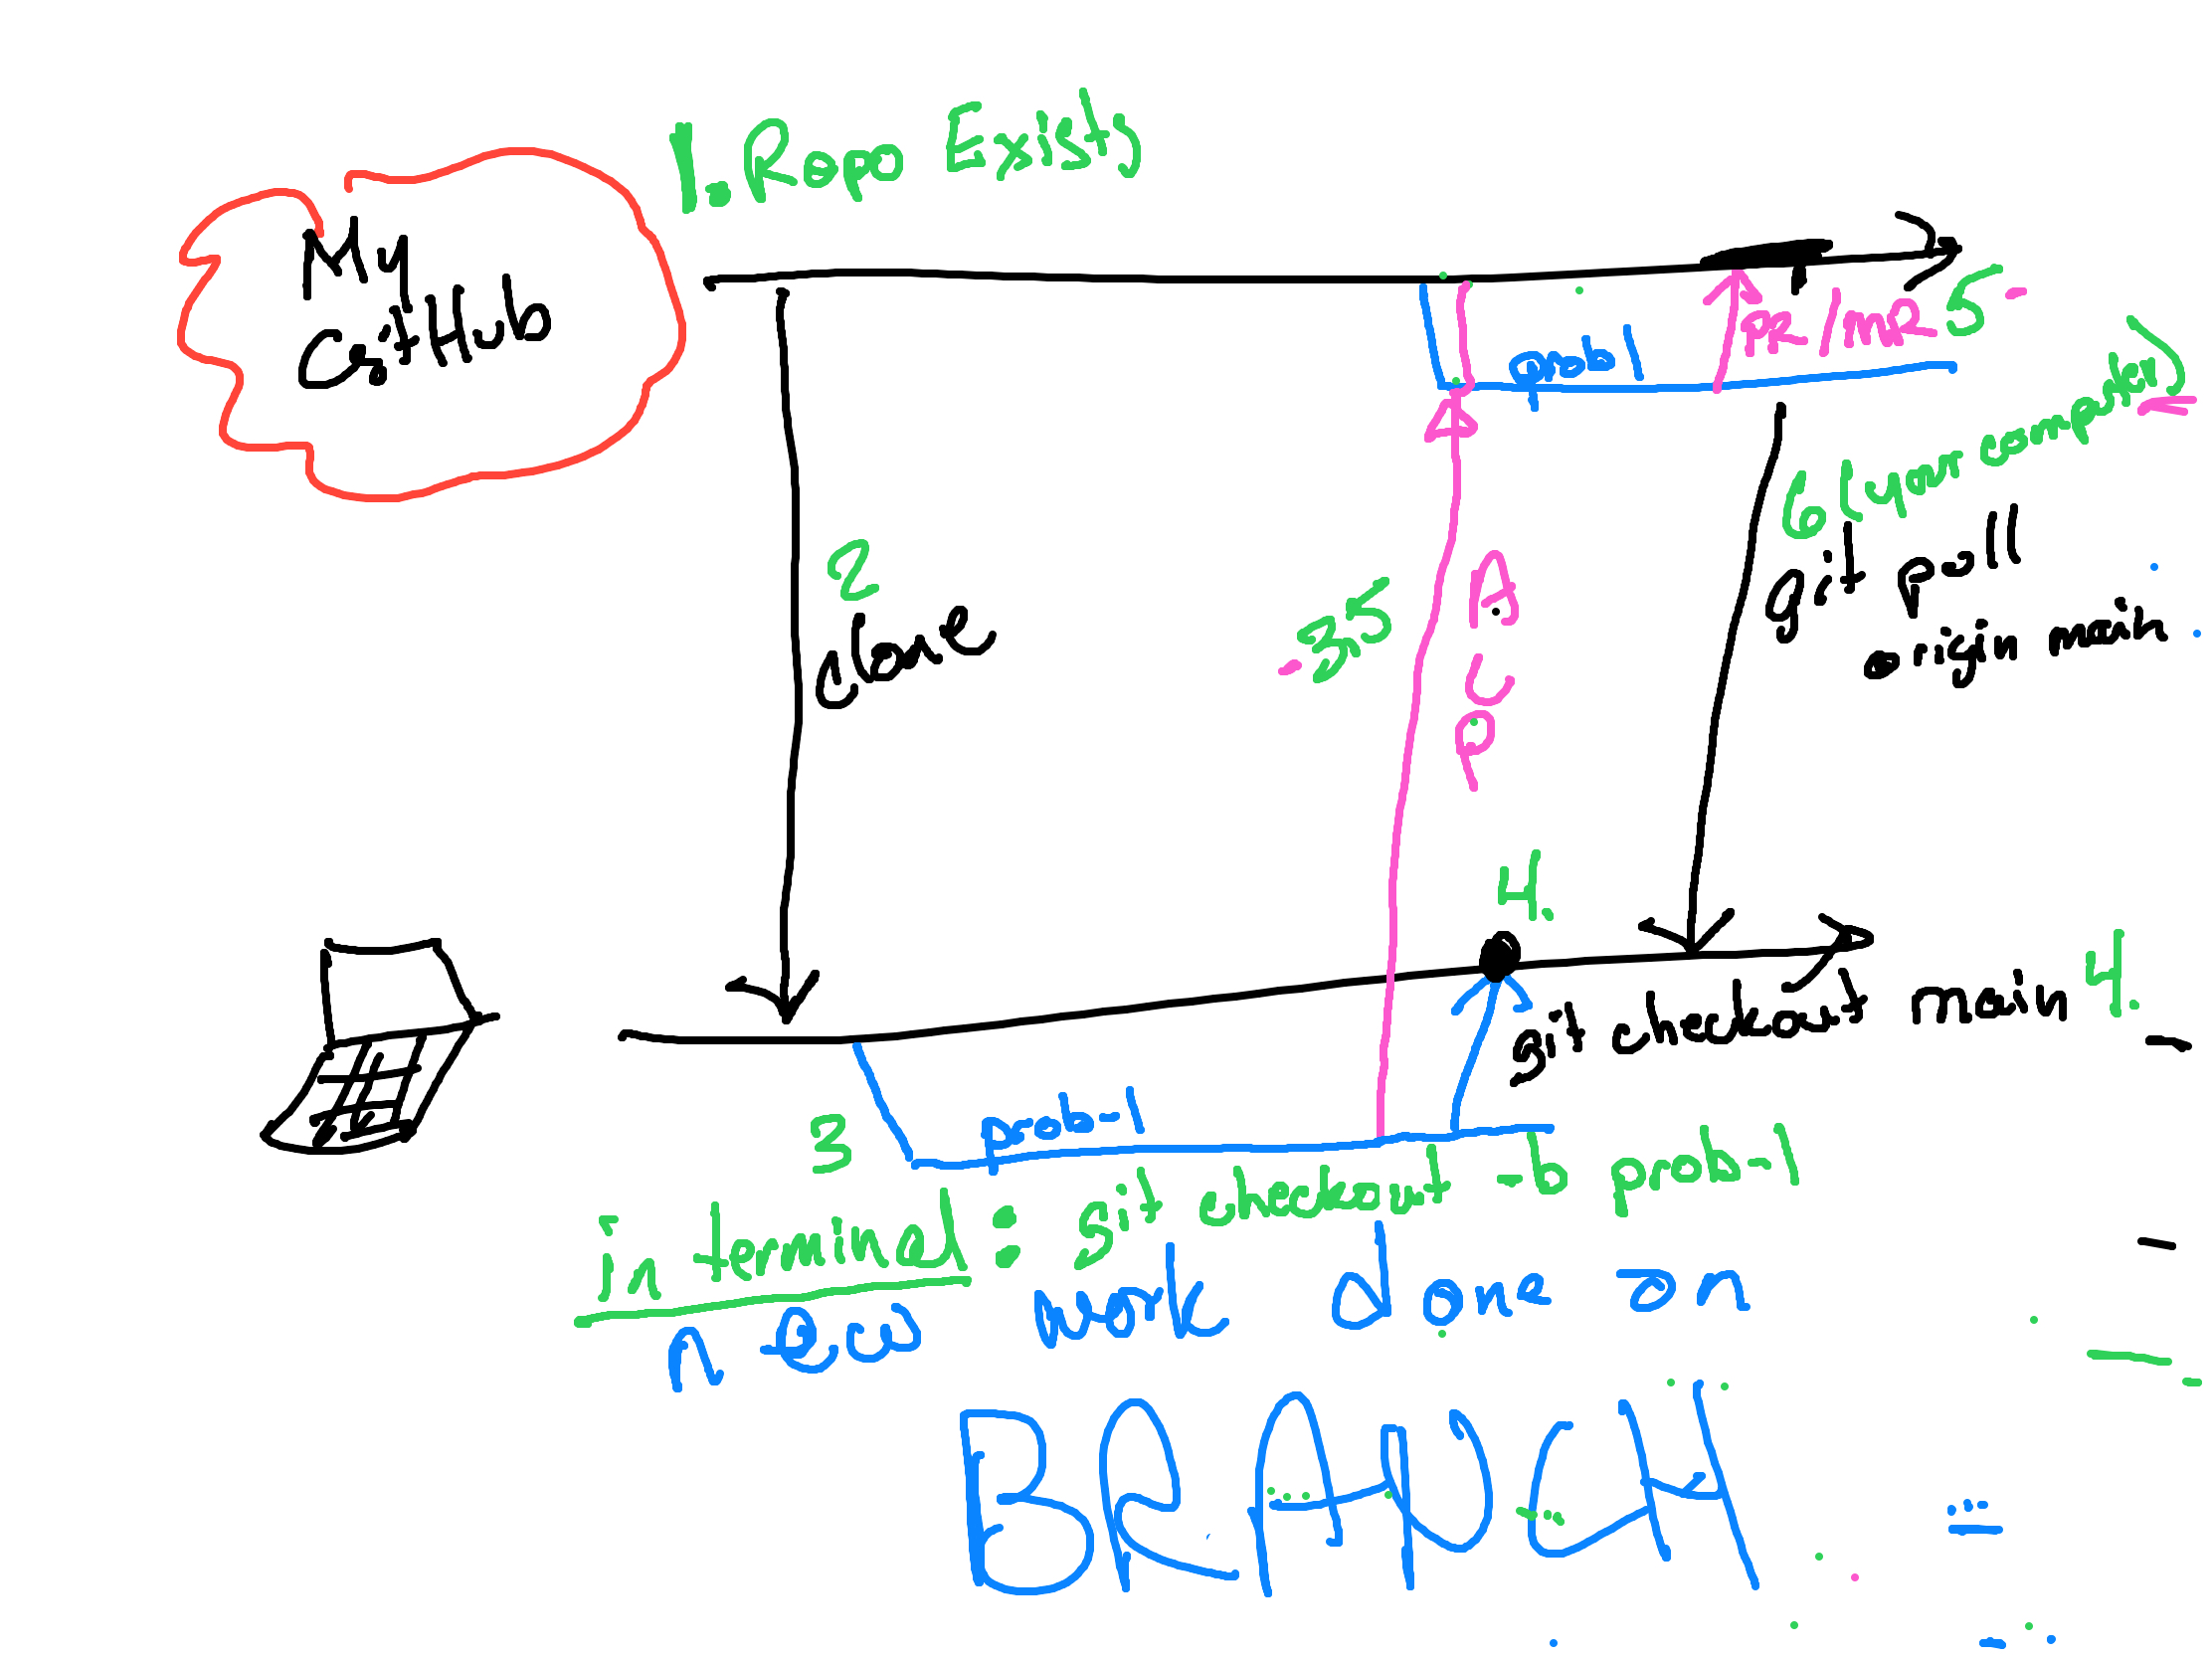 1. Repo Exists
My
GitHub
prob1
PR / MR 5
6 (your computer)
git pull
origin main
2
clone
3.5
A
C
P
4.
git checkout main 4.
3
prob-1
in terminal : git checkout -b prob-1
new work done on
BRANCH